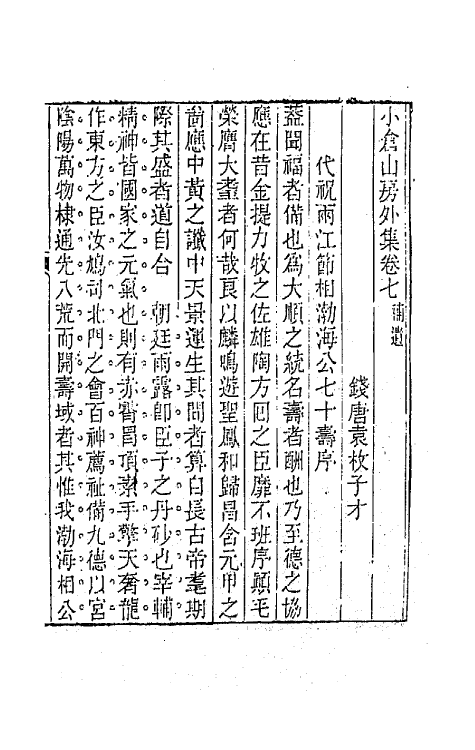 小倉山房外集卷七 補遺
錢唐袁枚子才
代祝兩江節相渤海公七十壽序
蓋聞福者備也為大順之統名壽者酬也乃至德之協
應在昔金提力牧之佐雄陶方回之臣靡不班序顛毛
榮膺大耋者何哉良以麟鳴遊聖鳳和歸昌含元甲之
崮應中黃之讖中天景運生其間者算自長古帝耄期
際其盛者道自合 朝廷雨露卽臣子之丹砂也宰輔
精神皆國家之元氣也則有赤霄昌項素手擎天奢龍
作東方之臣汝鳩司北門之會百神薦祉備九德以宮
陰陽萬物棣通先八荒而開壽域者其惟我渤海相公